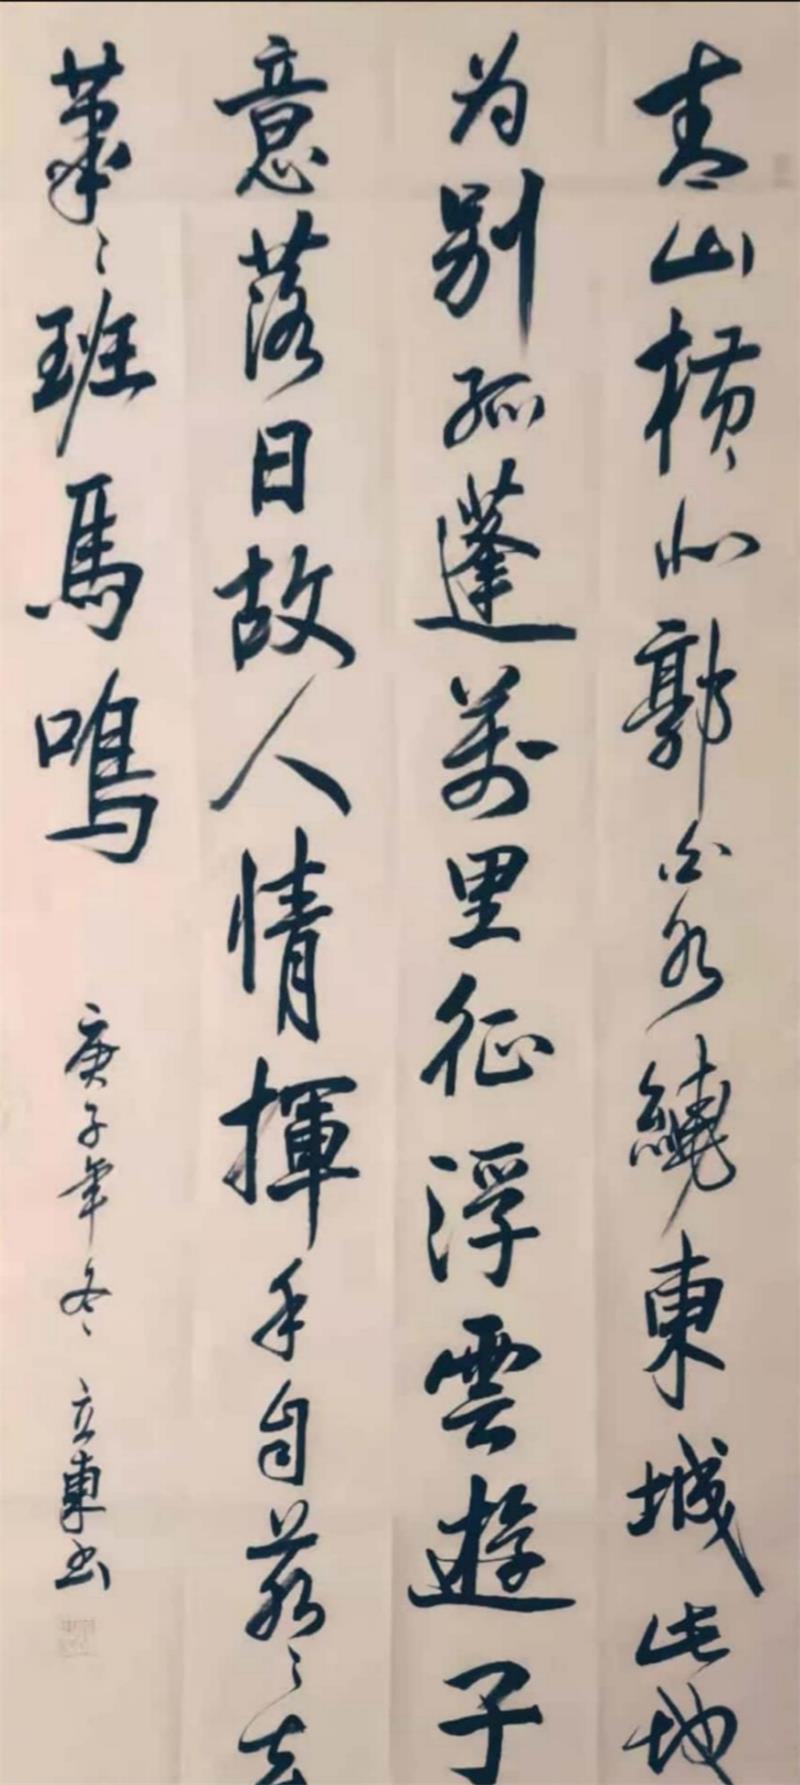 青山横北郭白水繞東城此地
为别孤蓬萬里征浮雲遊子
意落日故人情揮手自茲去
蕭々班馬鳴
庚子年冬 立東书